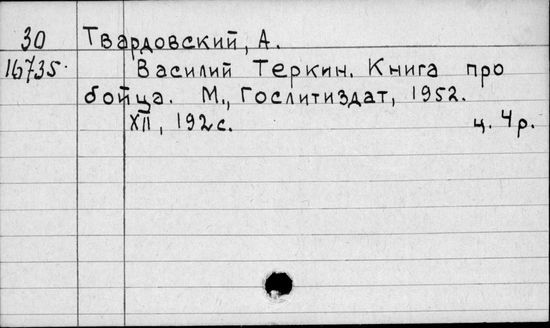 30 Твардовский, А.
16735. Василий Теркин. Книга про
бойца. М., Гослитиздат, 1952.
XII, 192 с. ц. 4 р.